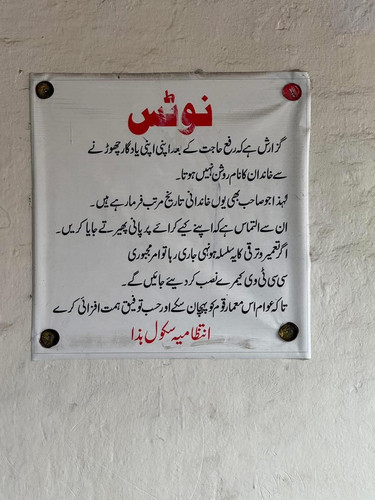 نوٹس
گزارش ہے کہ رفع حاجت کے بعد اپنی اپنی یادگار چھوڑنے
سے خاندان کا نام روشن نہیں ہوتا۔
لہذا جو صاحب بھی یوں خاندانی تاریخ مرتب فرما رہے ہیں۔
ان سے التماس ہے کہ اپنے کیے کرائے پر پانی پھیرتے جایا کریں۔
اگر تعمیر و ترقی کا یہ سلسلہ یونہی جاری رہا تو امر مجبوری
سی سی ٹی وی کیمرے نصب کر دیئے جائیں گے۔
تاکہ عوام اس معمار قوم کو پہچان سکے اور حسب توفیق ہمت افزائی کرے
انتظامیہ سکول ہذا